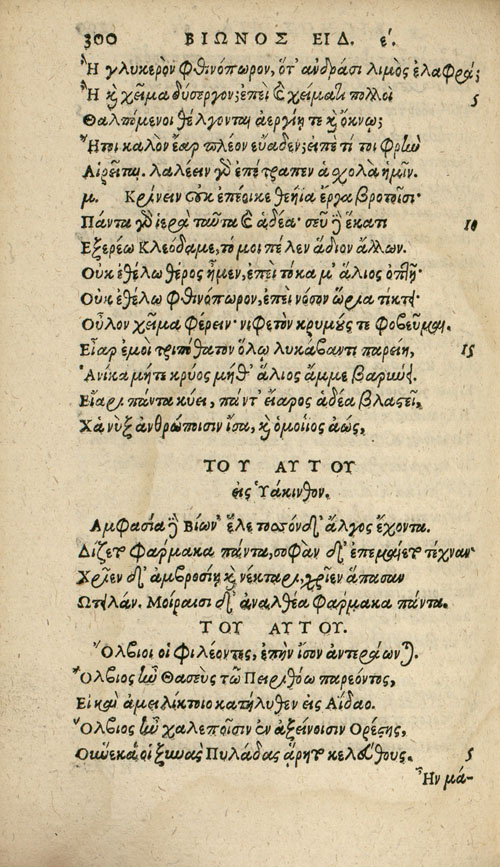 300 ΒΙΩΝΟΣ ΕΙΔ. έ.
Ἢ γλυκερὸν φθινόπωρον, ὅτ' ἀνδράσι λιμὸς ἐλαφρά;
Ἢ κỳ χεῖμα δύσεργον; ἐπεὶ ϗ χείματι πολλοὶ 5
Θαλπόμενοι θέλγονται ἀεργίη τε κỳ ὄκνω;
Ἤτοι καλὸν ἔαρ πλέον εὔαδεν; εἰπὲ τί τοι φρὼ
Αἱρεῖται. λαλέειν γὸ ἐπέτραπεν ἁ χολὰ ἡμῖν.
μ. Κρίνειν οὐκ ἐπέοικε θεήϊα ἔργα βροτοῖσι·
Πάντα γὸ ἱερὰ ταῦτα ϗ ἁδέα· σεῦ ἢ ἕκατι 10
Ἐξερέω Κλεόδαμε, τό μοι πέλεν ἅδιον ἄλλων.
Οὐκ ἐθέλω θέρος ἦμεν, ἐπεὶ τόκα μ' ἅλιος ὀπτῇ·
Οὐκ ἐθέλω φθινόπωρον, ἐπεὶ νόσον ὥρια τίκτει·
Οὖλον χεῖμα φέρειν· νιφετὸν κρυμούς τε φοβεῦμαι.
Εἶαρ ἐμοὶ τριπόθατον ὅλῳ λυκάβαντι παρείη, 15
Ἁνίκα μήτε κρύος μήθ' ἅλιος ἄμμε βαρύνει.
Εἴαρι πάντα κύει, πάντ' εἴαρος ἁδέα βλαστεῖ,
Χἁ νὺξ ἀνθρώποισιν ἴσα, κỳ ὁμοίϊος ἀώς,
ΤΟΥ ΑΥΤΟΥ
εἰς Ὑάκινθον.
Ἀμφασία ἢ Βίων' ἕλε τοσσόνδ' ἄλγος ἔχοντα.
Δίζετο φάρμακα πάντα, σοφὰν δ' ἐπεμαίετο τέχναν
Χρῖεν δ' ἀμβροσίῃ κỳ νέκταρι, χρῖεν ἅπασαν
Ὠτειλάν. Μοίραισι δ' ἀναλθέα φάρμακα πάντα.
ΤΟΥ ΑΥΤΟΥ.
Ὄλβιοι οἱ φιλέοντες, ἐπὴν ἴσον ἀντεράωνται.
Ὄλβιος ἦν Θασεὺς τῶ Πειριθόω παρεόντος,
Εἰ καὶ ἀμειλίκτοιο κατήλυθεν εἰς Ἀΐδαο.
Ὄλβιος ἦν χαλεποῖσιν ἐν ἀξείνοισιν Ὀρέστης,
Οὕνεκά οἱ ξυνὰς Πυλάδας ἄρητο κελεύθους. 5
Ἦν μά-